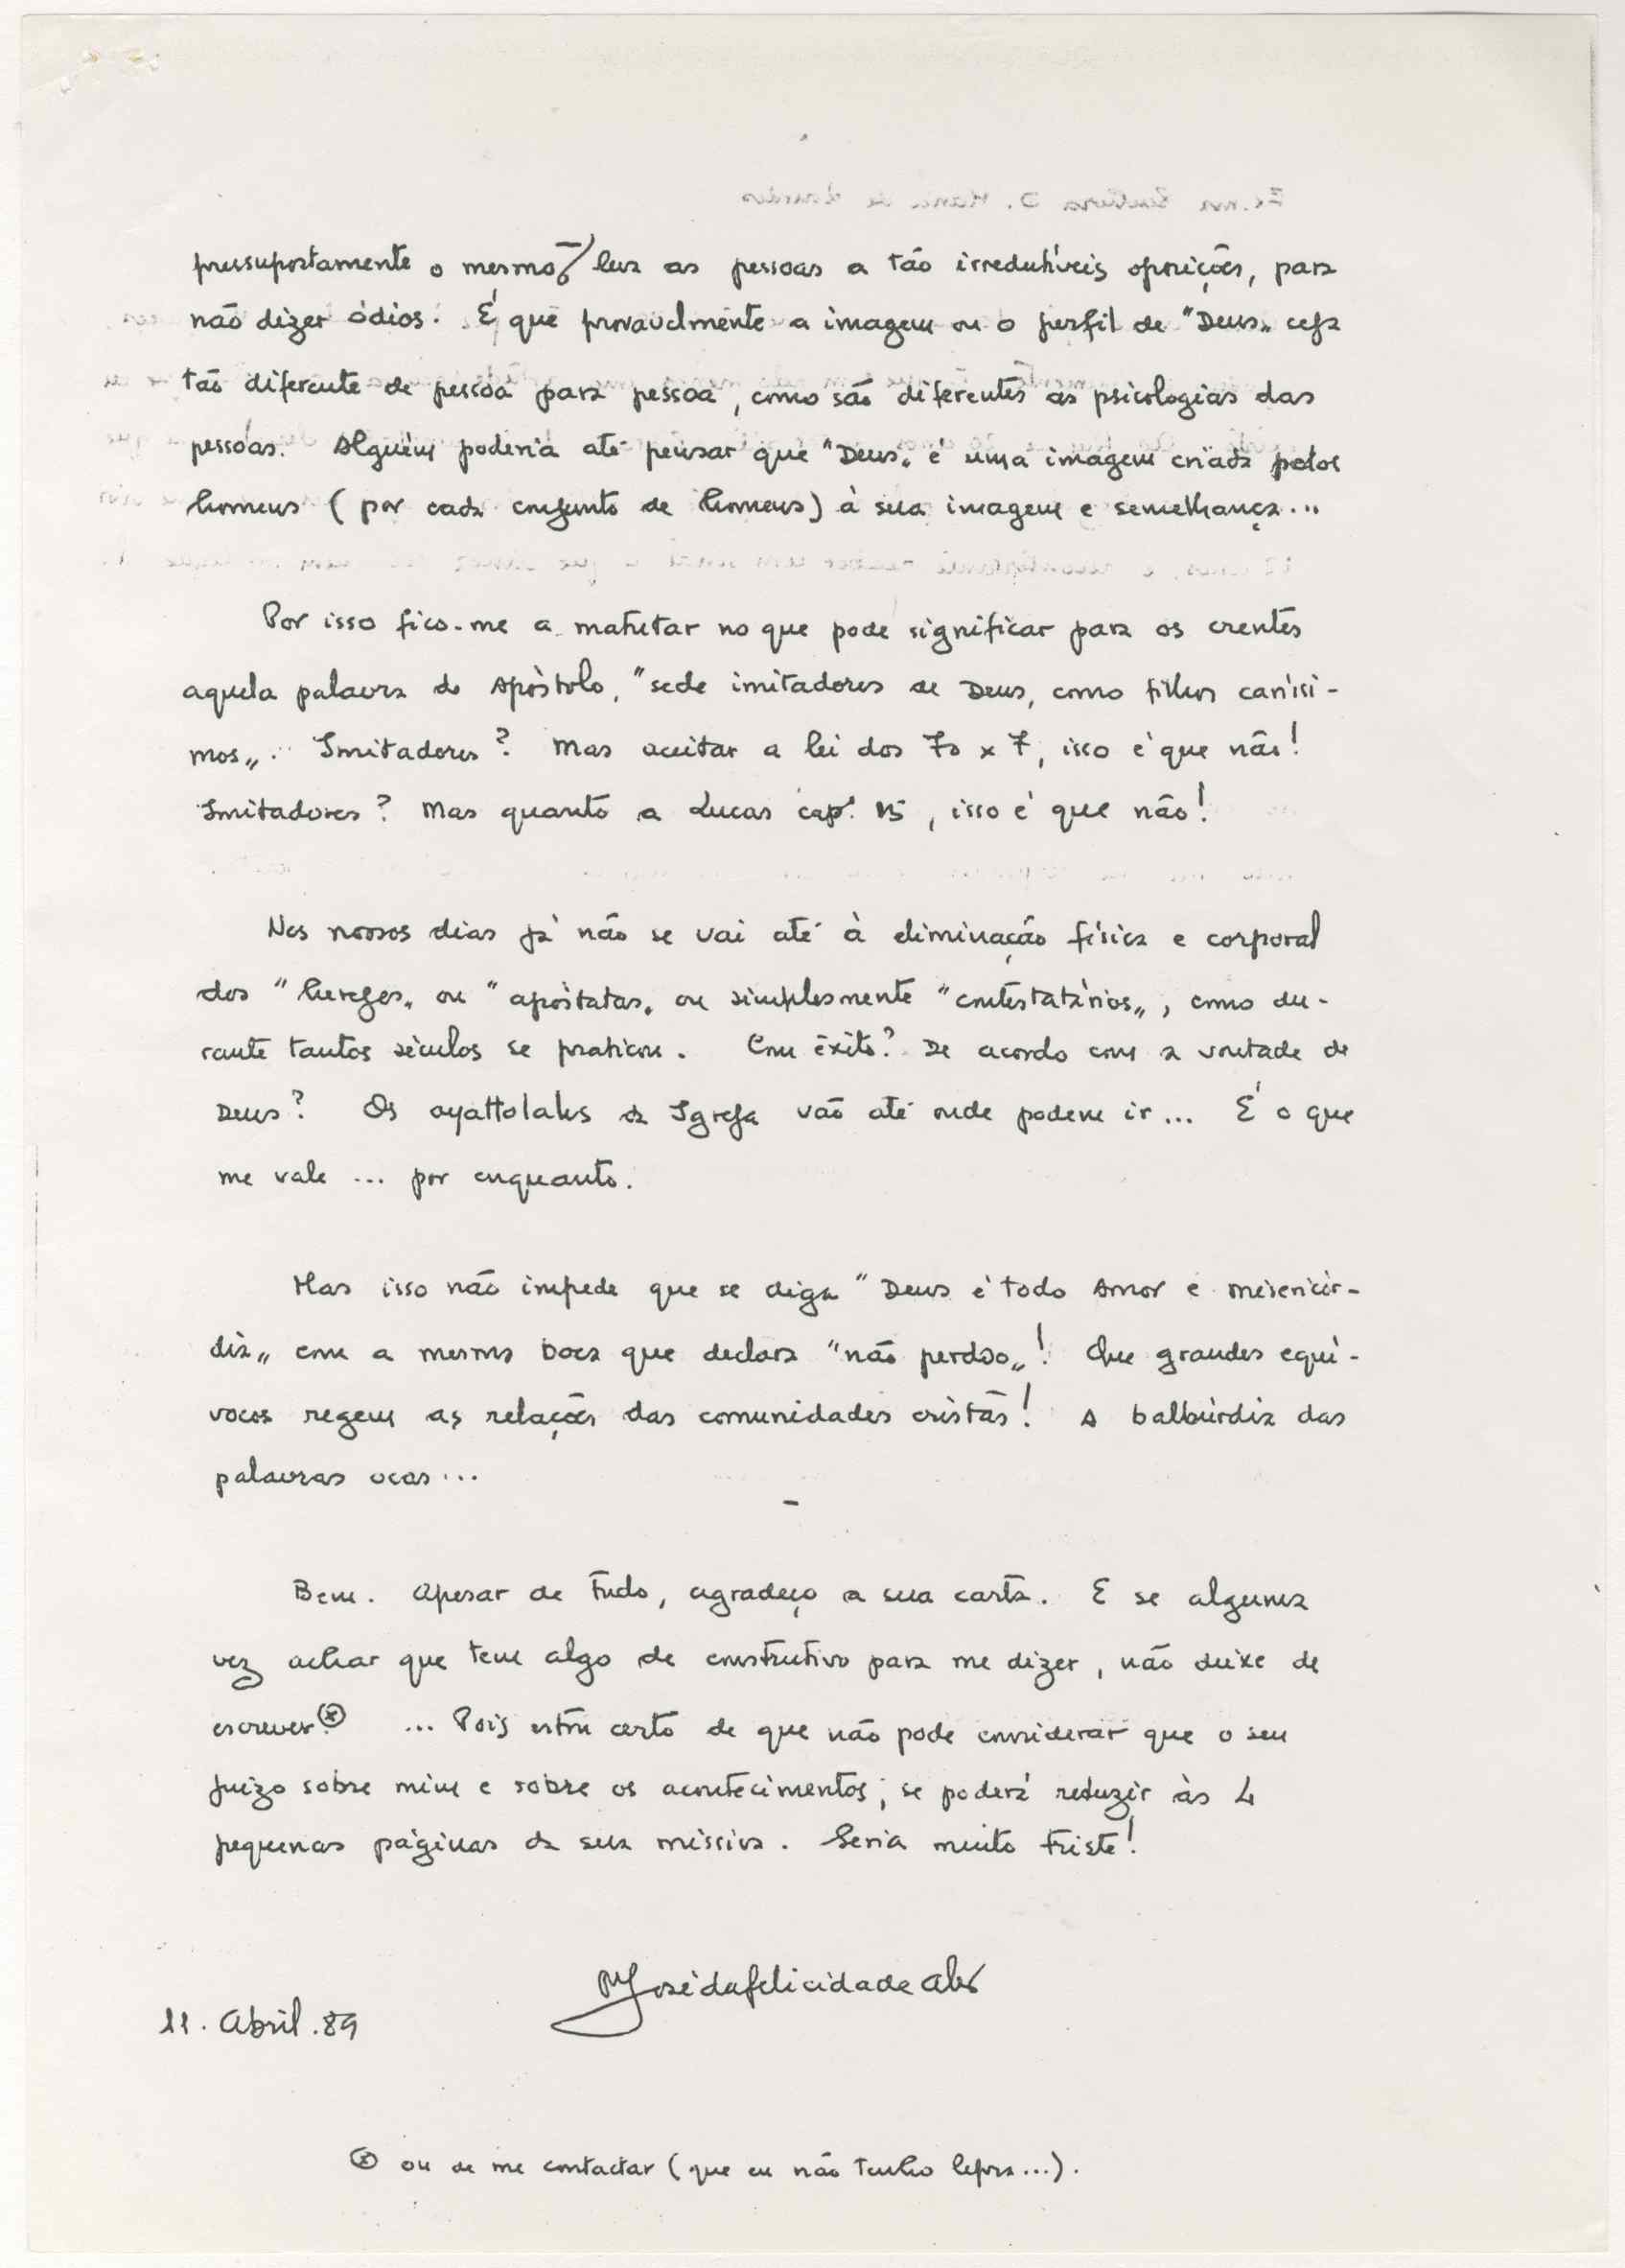 pressupostamente o mesmo leva as pessoas a tão irredutíveis oposições, para
não dizer ódios. É que provavelmente a imagem ou o perfil de "Deus" seja
tão diferente de pessoa para pessoa, como são diferentes as psicologias das
pessoas. Alguém poderia até pensar que "Deus" é uma imagem criada pelos
homens (por cada conjunto de homens) à sua imagem e semelhança...
Por isso fico-me a matutar no que pode significar para os crentes
aquela palavra do Apòstolo, "sede imitadores de Deus, como filhos caríssi-
mos". Imitadores? Mas aceitar a lei dos 70 x 7, isso é que não!
Imitadores? Mas quanto a Lucas cap. 15, isso é que não!
Nos nossos dias já não se vai até à eliminação física e corporal
dos "hereges" ou "apòstatas" ou simplesmente "contestatários", como du-
rante tantos séculos se praticou. Com êxito? De acordo com a vontade de
Deus? Os ayattolahs da Igreja vão até onde podem ir... É o que
me vale ... por enquanto.
Mas isso não impede que se diga "Deus é todo Amor e misericór-
dia" com a mesma boca que declara "não perdoo"! Que grandes equí-
vocos regem as relações das comunidades cristãs! A balbúrdia das
palavras ocas...
-
Bem. Apesar de tudo, agradeço a sua carta. E se alguma
vez achar que tem algo de construtivo para me dizer, não deixe de
escrever.⊛ ... Pois estou certo de que não pode considerar que o seu
juízo sobre mim e sobre os acontecimentos, se poderá reduzir às 4
pequenas páginas da sua missiva. Seria muito triste!
José da felicidade alves
11. Abril. 89
⊛ ou de me contactar (que eu não tenho lepra...).